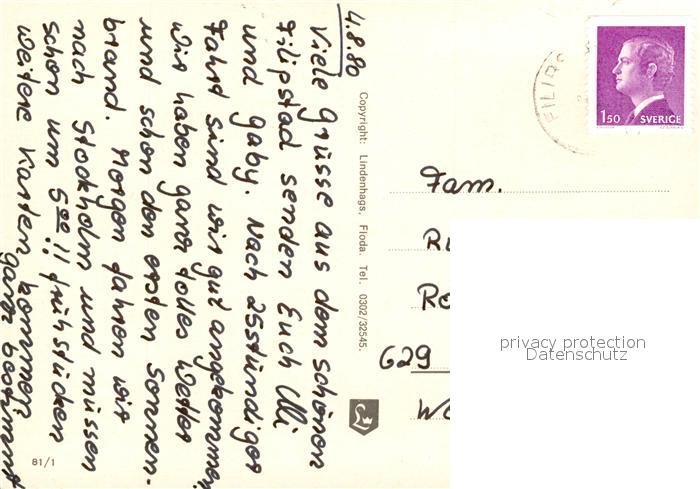 4.8.80
Viele Grüsse aus dem schönen
Filipstad senden Euch Ulli
und Gaby. Nach 25stündiger
Fahrt sind wir gut angekommen.
Wir haben ganz tolles Wetter
und schon den ersten Sonnen-
brand. Morgen fahren wir
nach Stockholm und müssen
schon um 5oo!! frühstücken
Weitere Karten kommen
ganz bestimmt
Copyright: Lindenhags, Floda. Tel. 0302/32545.
81/1
FILIPS
1.50 SVERIGE
Fam.
629
privacy protection
Datenschutz